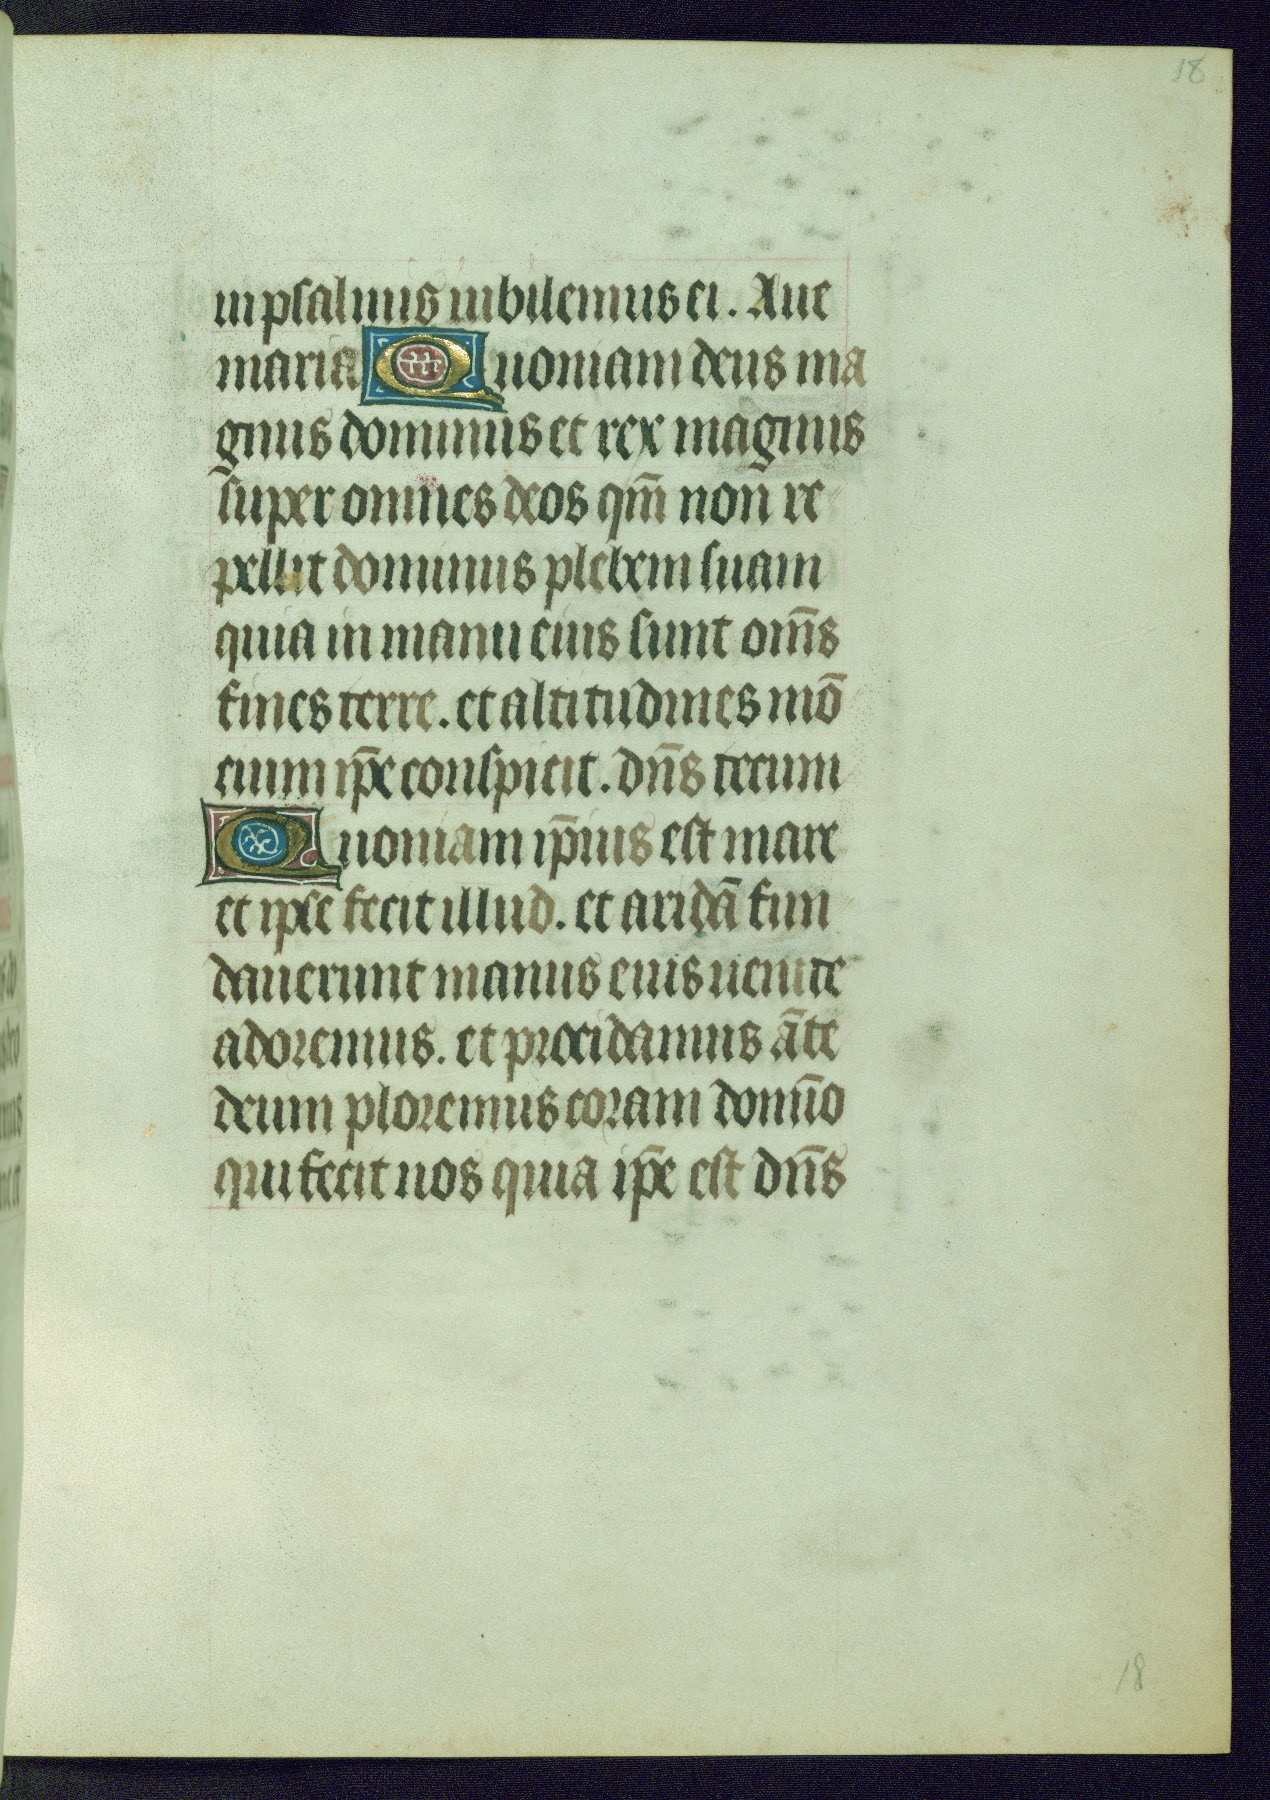 18
in psalmis iubilemus ei. Aue
maria Quoniam deus ma
gnus dominus et rex magnus
super omnes deos qm̄ non re
pellit dominus plebem suam
quia in manu eius sunt om̄s
fines terre. et altitudines mō
cium ip̄e conspicit. dn̄s tecum
Quoniam ip̄ius est mare
et ipse fecit illud. et aridā fun
dauerunt manus eius uenite
adoremus. et procidamus āte
deum ploremus coram domīo
qui fecit nos quia ip̄e est dn̄s
18